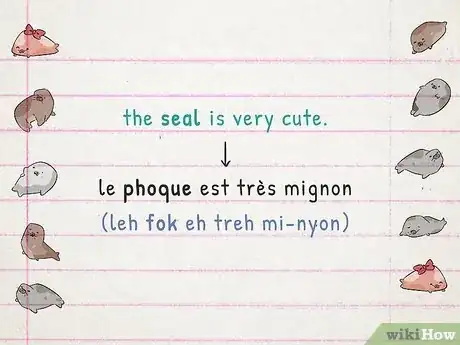 the seal is very cute.
↓
le phoque est très mignon
(leh fok eh treh mi-nyon)
wikiHow